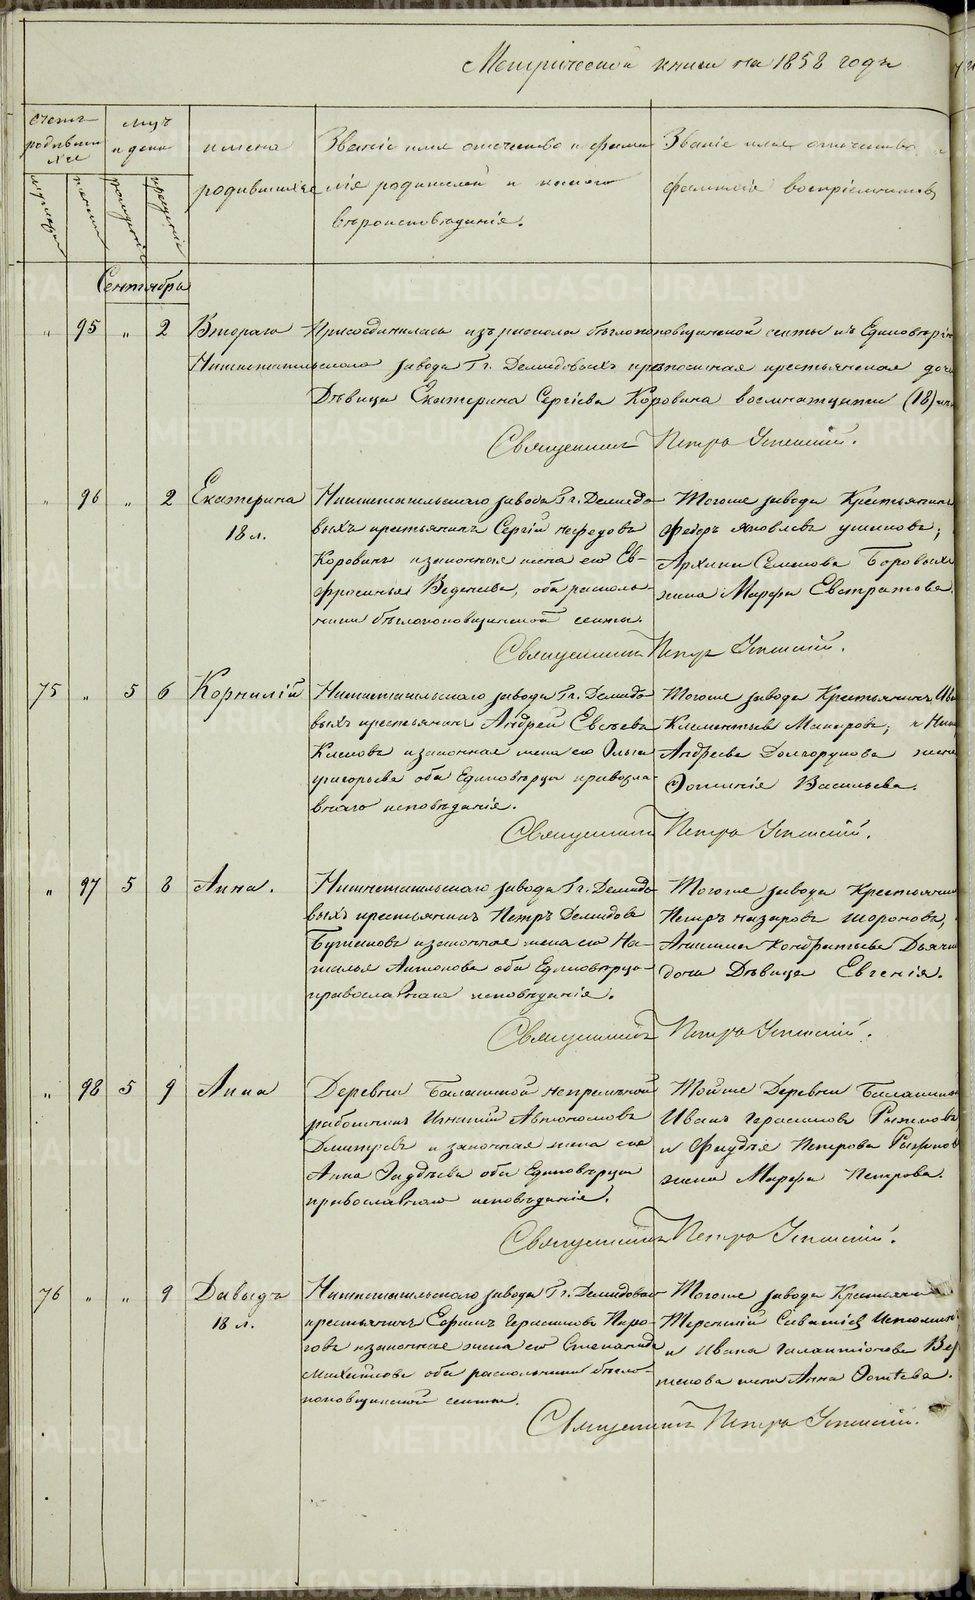 Метрической книги на 1858 годъ
счетъ родившихся
мужеска
женска
мѣс. и дни
рожденія
крещенія
имена родившихся
Званіе имя отечество и фами-
лія родителей и какого
вѣроисповѣданія.
Званіе имя отчество и
фамилія воспріемниковъ
Сентябрь
" 95 " 2 Втораго Присоединилась изъ раскола бѣглопоповщинской секты къ Единовѣрію
Нижнетагильскаго завода Гг. Демидовыхъ крѣпостная крестьянская дочь
Дѣвица Екатерина Сергіева Коровина восемнатцати (18) лѣтъ
Священникъ Петръ
" 96 " 2 Екатерина
18 л.
Нижнетагильскаго завода Гг. Демидо-
выхъ крестьянинъ Сергій Нефодовъ
Коровинъ изаконная жена его Ев-
фросинья, оба расколь-
ники бѣглопоповщинской секты.
Тогоже завода Крестьянинъ
Федоръ Яковлевъ;
Семенова Боровыхъ
жена Марфа Евстратова.
Священникъ Петръ
75 " 5 6 Корнилій
Нижнетагильскаго завода Гг. Демидо-
выхъ крестьянинъ Андрей Евсѣевъ
изаконная жена его Ольга
Григорьева оба Единовѣрцы правосла-
внаго исповѣданія.
Тогоже завода Крестьянинъ
Климентьевъ Макаровъ; и
Андреева Долгорукова жена
Васильева.
Священникъ Петръ
" 97 5 8 Анна.
Нижнетагильскаго завода Гг. Демидо-
выхъ крестьянинъ Петръ Демидовъ
изаконная жена его На-
талья Антонова оба Единовѣрцы
православнаго исповѣданія.
Тогоже завода Крестьянинъ
Петръ Назаровъ,
Кондратьева
дочь Дѣвица Евгенія.
Священникъ Петръ
" 98 5 9 Анна
Деревни Балакиной непремѣнной
работникъ Игнатій Автономовъ
и законная жена его
Анна оба Единовѣрцы
православнаго исповѣданія.
Тойже Деревни
Иванъ Герасимовъ
и Петрова
жена Марфа Петрова.
Священникъ Петръ
76 " " 9 Давыдъ
18 л.
Нижнетагильскаго завода Гг. Демидовыхъ
крестьянинъ Ефимъ Герасимовъ Пиро-
говъ изаконная жена его Степанида
Михайлова оба раскольники бѣгло-
поповщинской секты.
Тогоже завода Крестьяне
Терентій
и Ивана Галактіонова
жена Анна.
Священникъ Петръ
METRIKI.GASO-URAL.RU